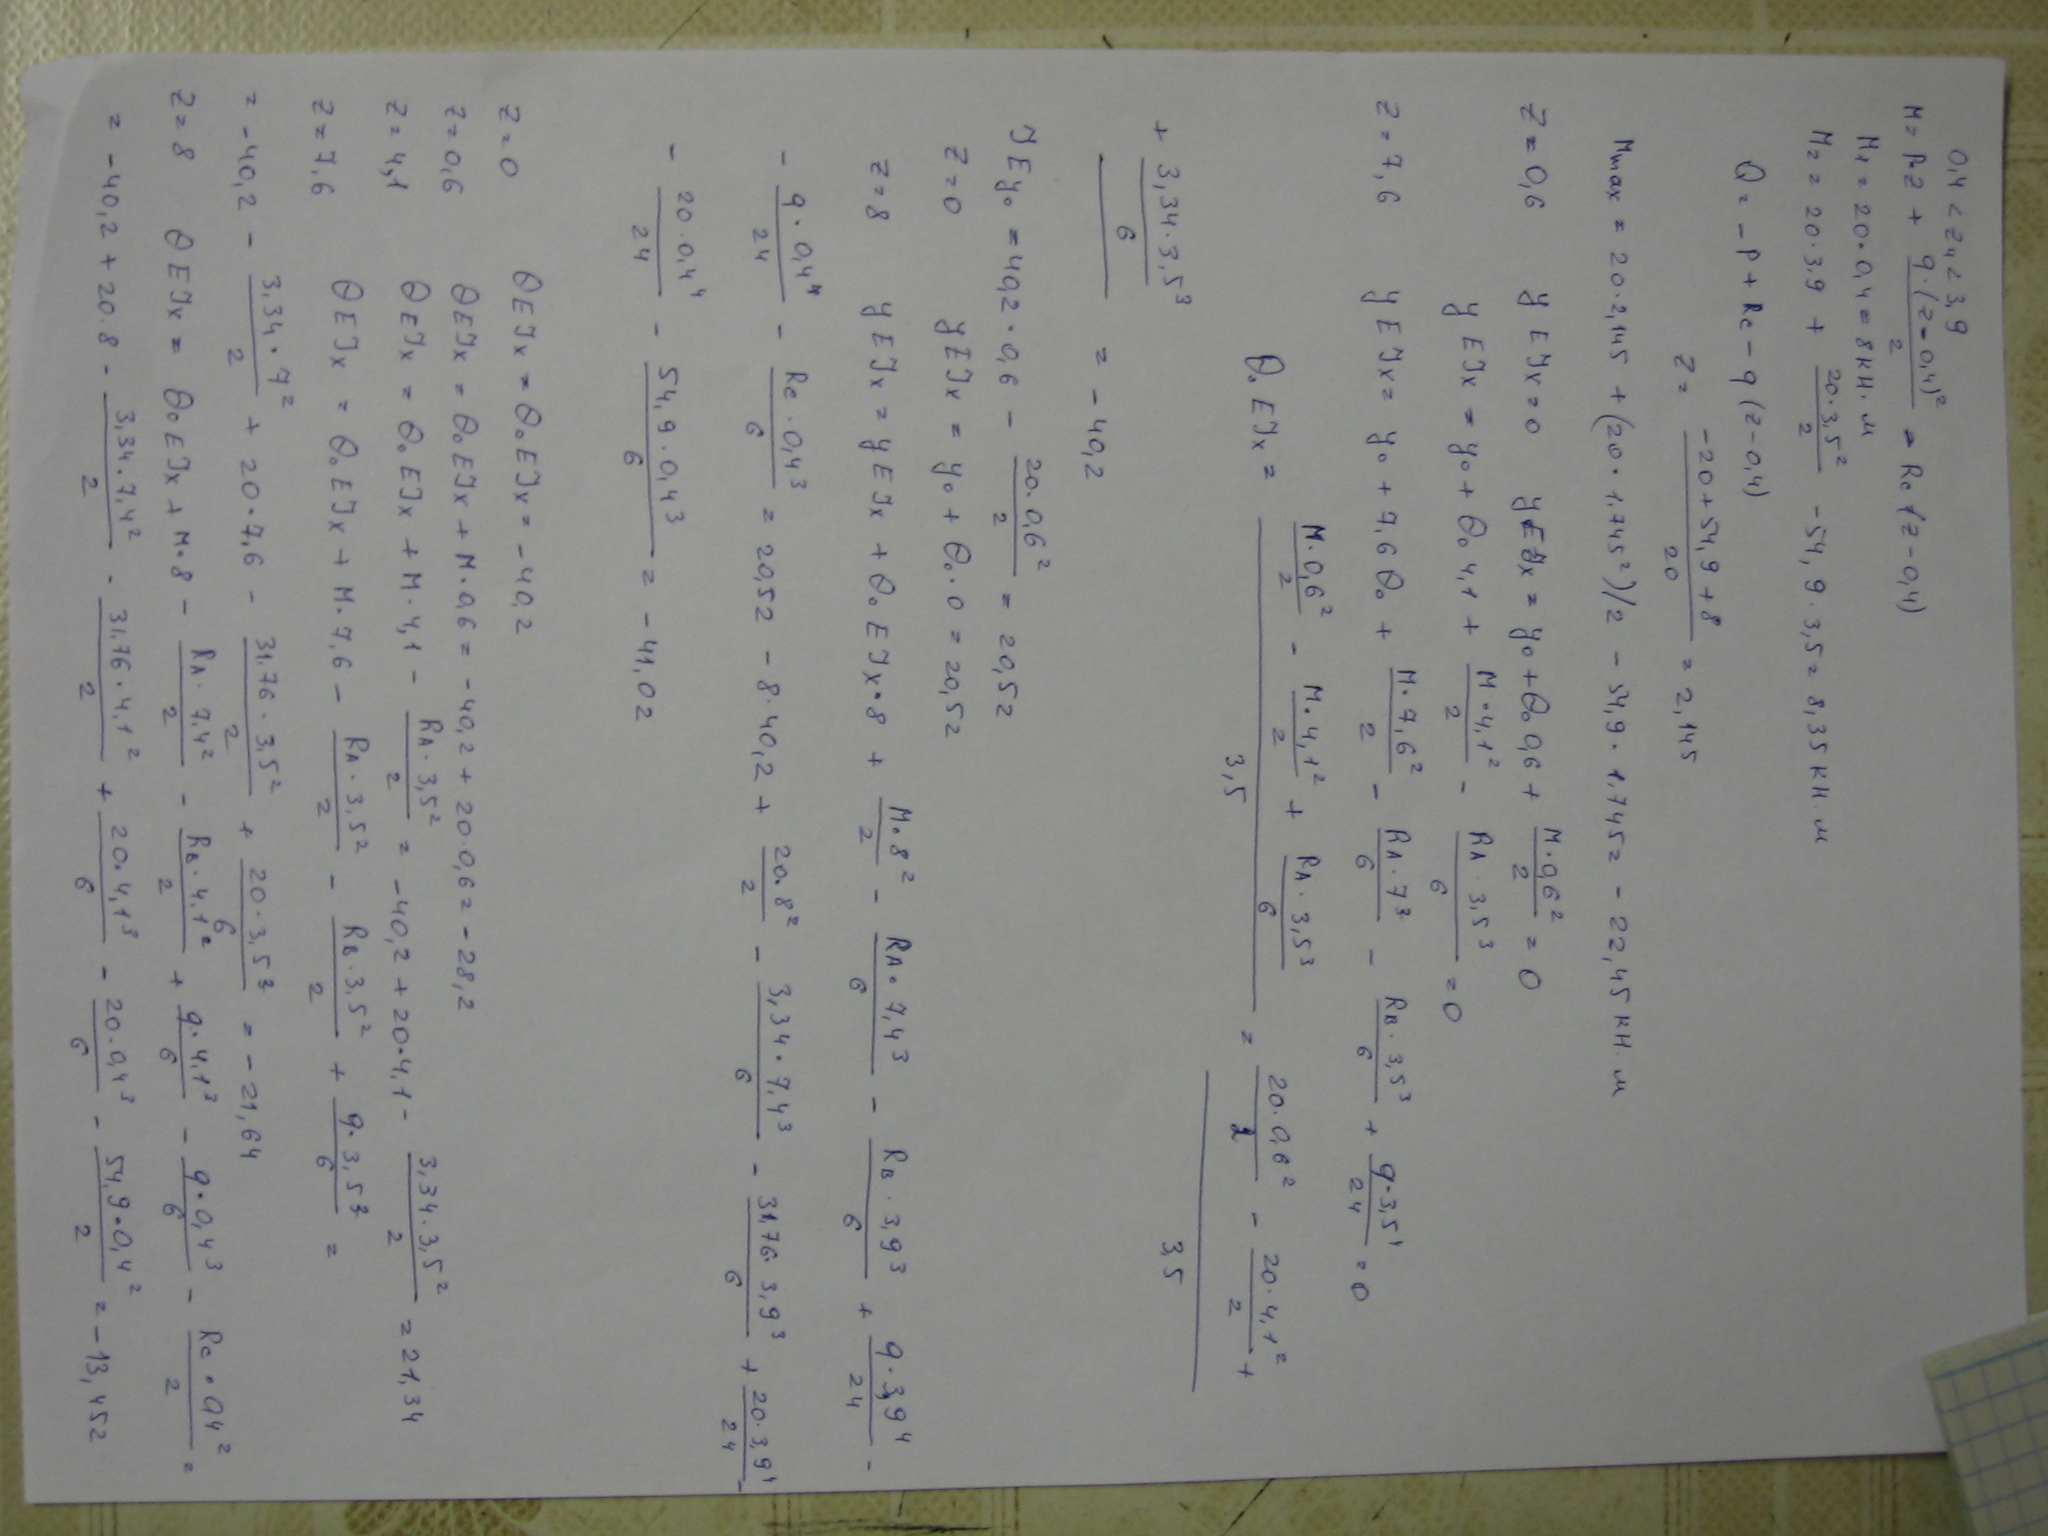 0,4 < z₄ < 3,9
M = Pz + q·(z-0,4)²/2 = Rc(z-0,4)
M₁ = 20·0,4 = 8 кН·м
M₂ = 20·3,9 + 20·3,5²/2 - 54,9·3,5 = 8,35 кН·м
Q = -P + Rc - q(z-0,4)
z = (-20+54,9+8)/20 = 2,145
Mmax = 20·2,145 + (20·1,745²)/2 - 54,9·1,745 = -22,45 кН·м
z = 0,6 yEJx = 0 yEJx = y₀ + θ₀0,6 + M·0,6²/2 = 0
yEJx = y₀ + θ₀4,1 + M·4,1²/2 - RA·3,5³/6 = 0
z = 7,6 yEJx = y₀ + 7,6θ₀ + M·7,6²/2 - RA·7³/6 - RB·3,5³/6 + q·3,5⁴/24 = 0
θ₀EJx = (M·0,6²/2 - M·4,1²/2 + RA·3,5³/6)/3,5 = (20·0,6²/2 - 20·4,1²/2 +
+ 3,34·3,5³/6)/3,5 = -40,2
JEy₀ = 40,2·0,6 - 20·0,6²/2 = 20,52
z = 0 yEJx = y₀ + θ₀·0 = 20,52
z = 8 yEJx = yEJx + θ₀EJx·8 + M·8²/2 - RA·7,4³/6 - RB·3,9³/6 + q·3,9⁴/24 -
- q·0,4⁴/24 - Rc·0,4³/6 = 20,52 - 8·40,2 + 20·8²/2 - 3,34·7,4³/6 - 31,76·3,9³/6 + 20·3,9⁴/24 -
- 20·0,4⁴/24 - 54,9·0,4³/6 = -41,02
z = 0 θEJx = θ₀EJx = -40,2
z = 0,6 θEJx = θ₀EJx + M·0,6 = -40,2 + 20·0,6 = -28,2
z = 4,1 θEJx = θ₀EJx + M·4,1 - RA·3,5²/2 = -40,2 + 20·4,1 - 3,34·3,5²/2 = 21,34
z = 7,6 θEJx = θ₀EJx + M·7,6 - RA·3,5²/2 - RB·3,5²/2 + q·3,5³/6 =
= -40,2 - 3,34·7²/2 + 20·7,6 - 31,76·3,5²/2 + 20·3,5³/6 = -21,64
z = 8 θEJx = θ₀EJx + M·8 - RA·7,4²/2 - RB·4,1²/2 + q·4,1³/6 - q·0,4³/6 - Rc·0,4²/2 =
= -40,2 + 20·8 - 3,34·7,4²/2 - 31,76·4,1²/2 + 20·4,1³/6 - 20·0,4³/6 - 54,9·0,4²/2 = -13,452